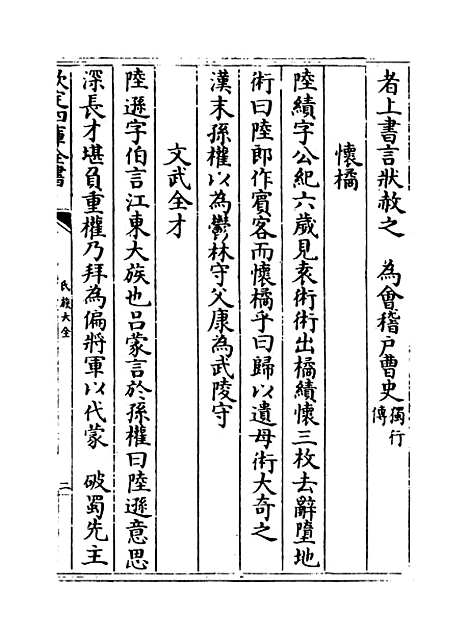 者上書言狀赦之　為會稽戶曹史獨行傳
懷橘
陸績字公紀六歲見袁術術出橘績懷三枚去辭墮地
術曰陸郎作賓客而懷橘乎曰歸以遺母術大奇之
漢末孫權以為鬱林守父康為武陵守
文武全才
陸遜字伯言江東大族也呂蒙言於孫權曰陸遜意思
深長才堪負重權乃拜為偏將軍以代蒙　破蜀先主
欽定四庫全書
氏族大全
二